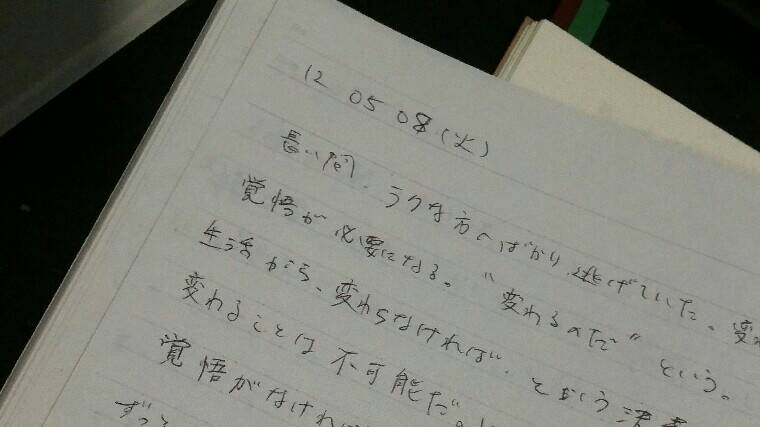 12 05 08 (火)
長い間、ラクな方へばかり逃げていた。変わ
覚悟が必要になる。"変わるのだ" という。
生活から、変わらなければ、という決
変わることは不可能だ。
覚悟がなければ
ずっと